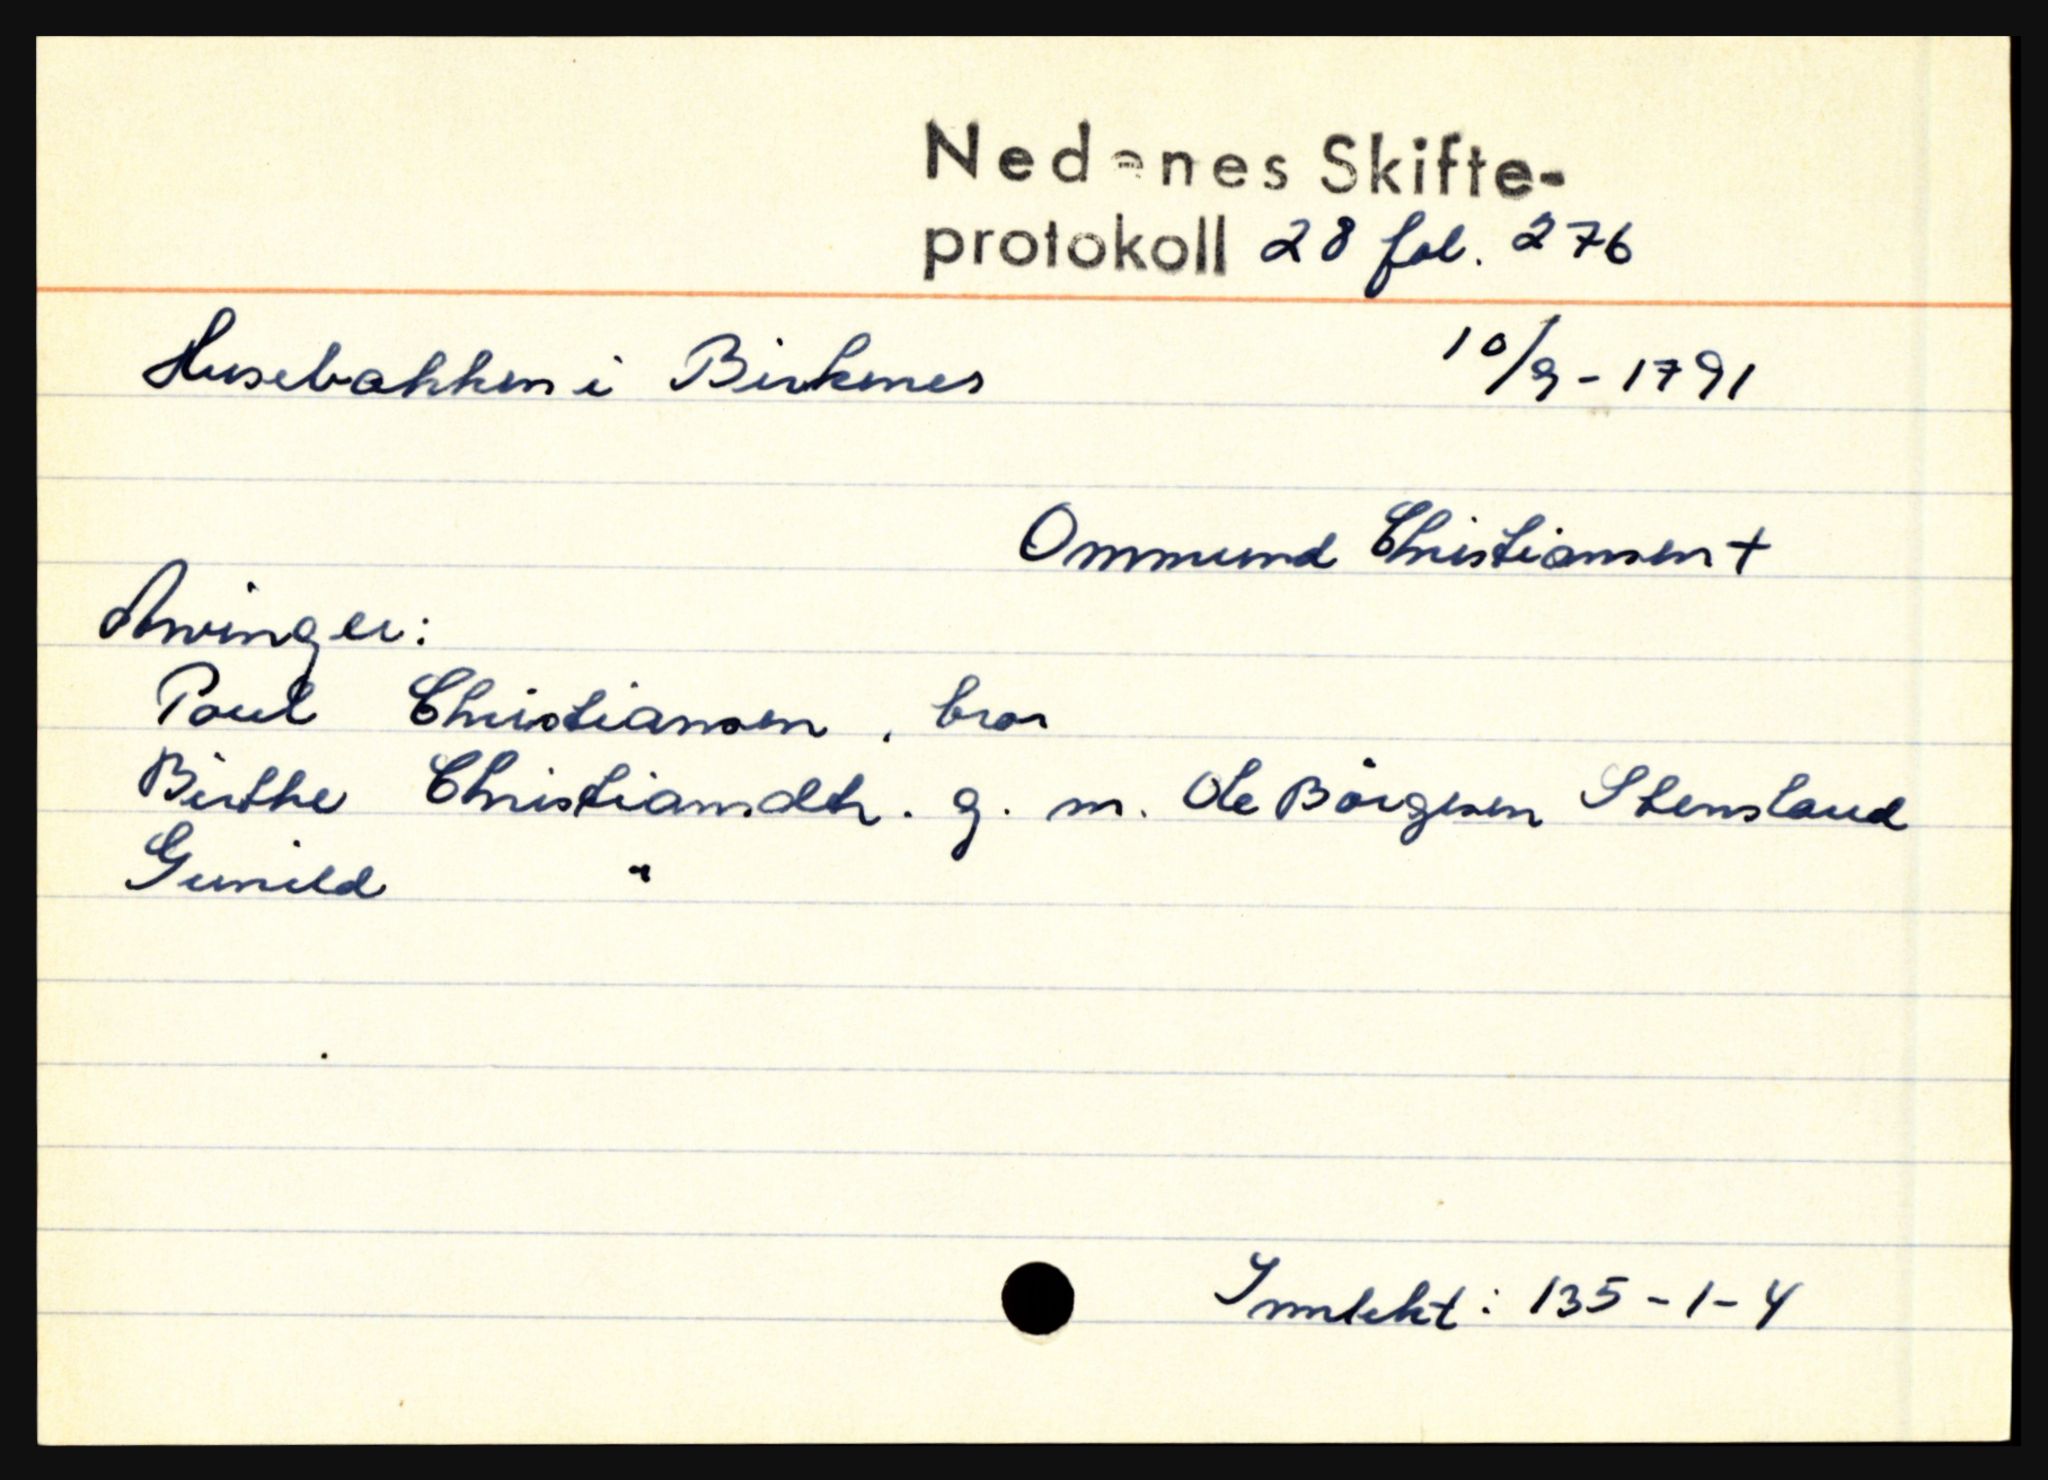 Nedenes Skifte-
protokoll 28 fol. 276
Husebakken i Birkenes 10/9-1791
Ommund Christiansen +
Arvinger:
Poul Christiansen, bror
Birthe Christiansdtr. g. m. Ole Børgesen Stensland
Gunild "
Inntekt: 135-1-4